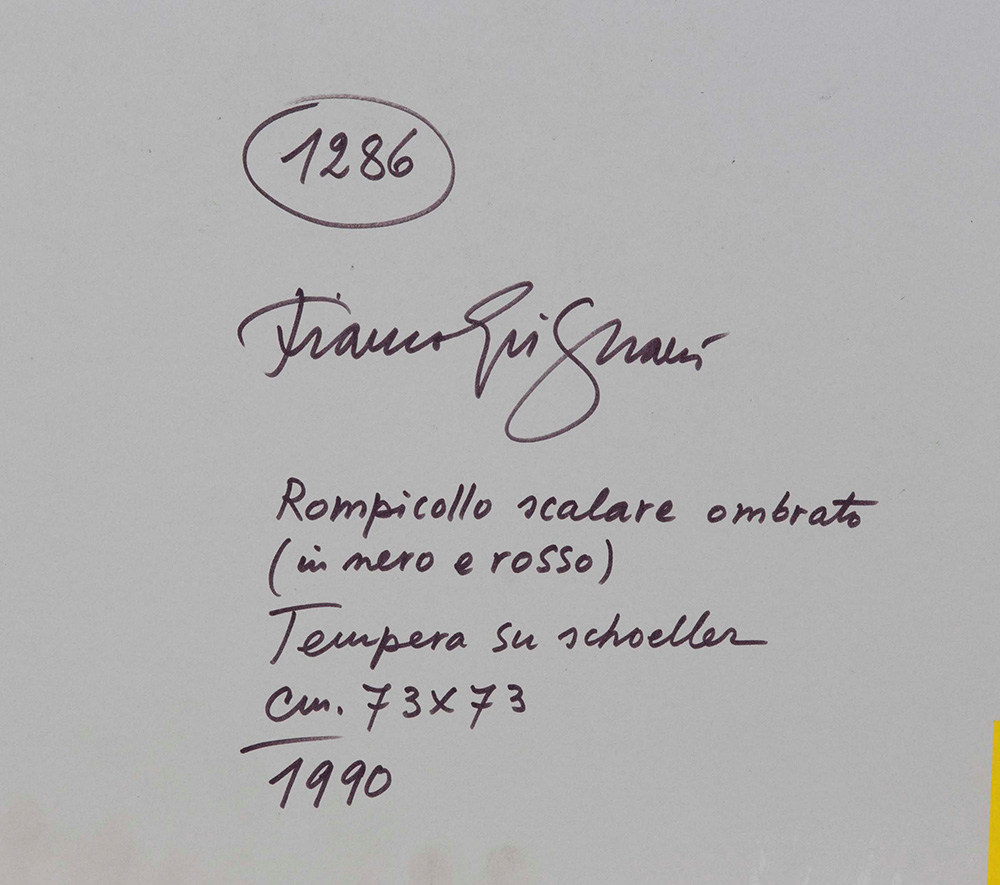 1286
Franco Grignani
Rompicollo scalare ombrato
(in nero e rosso)
Tempera su schoeller
cm. 73x73
1990